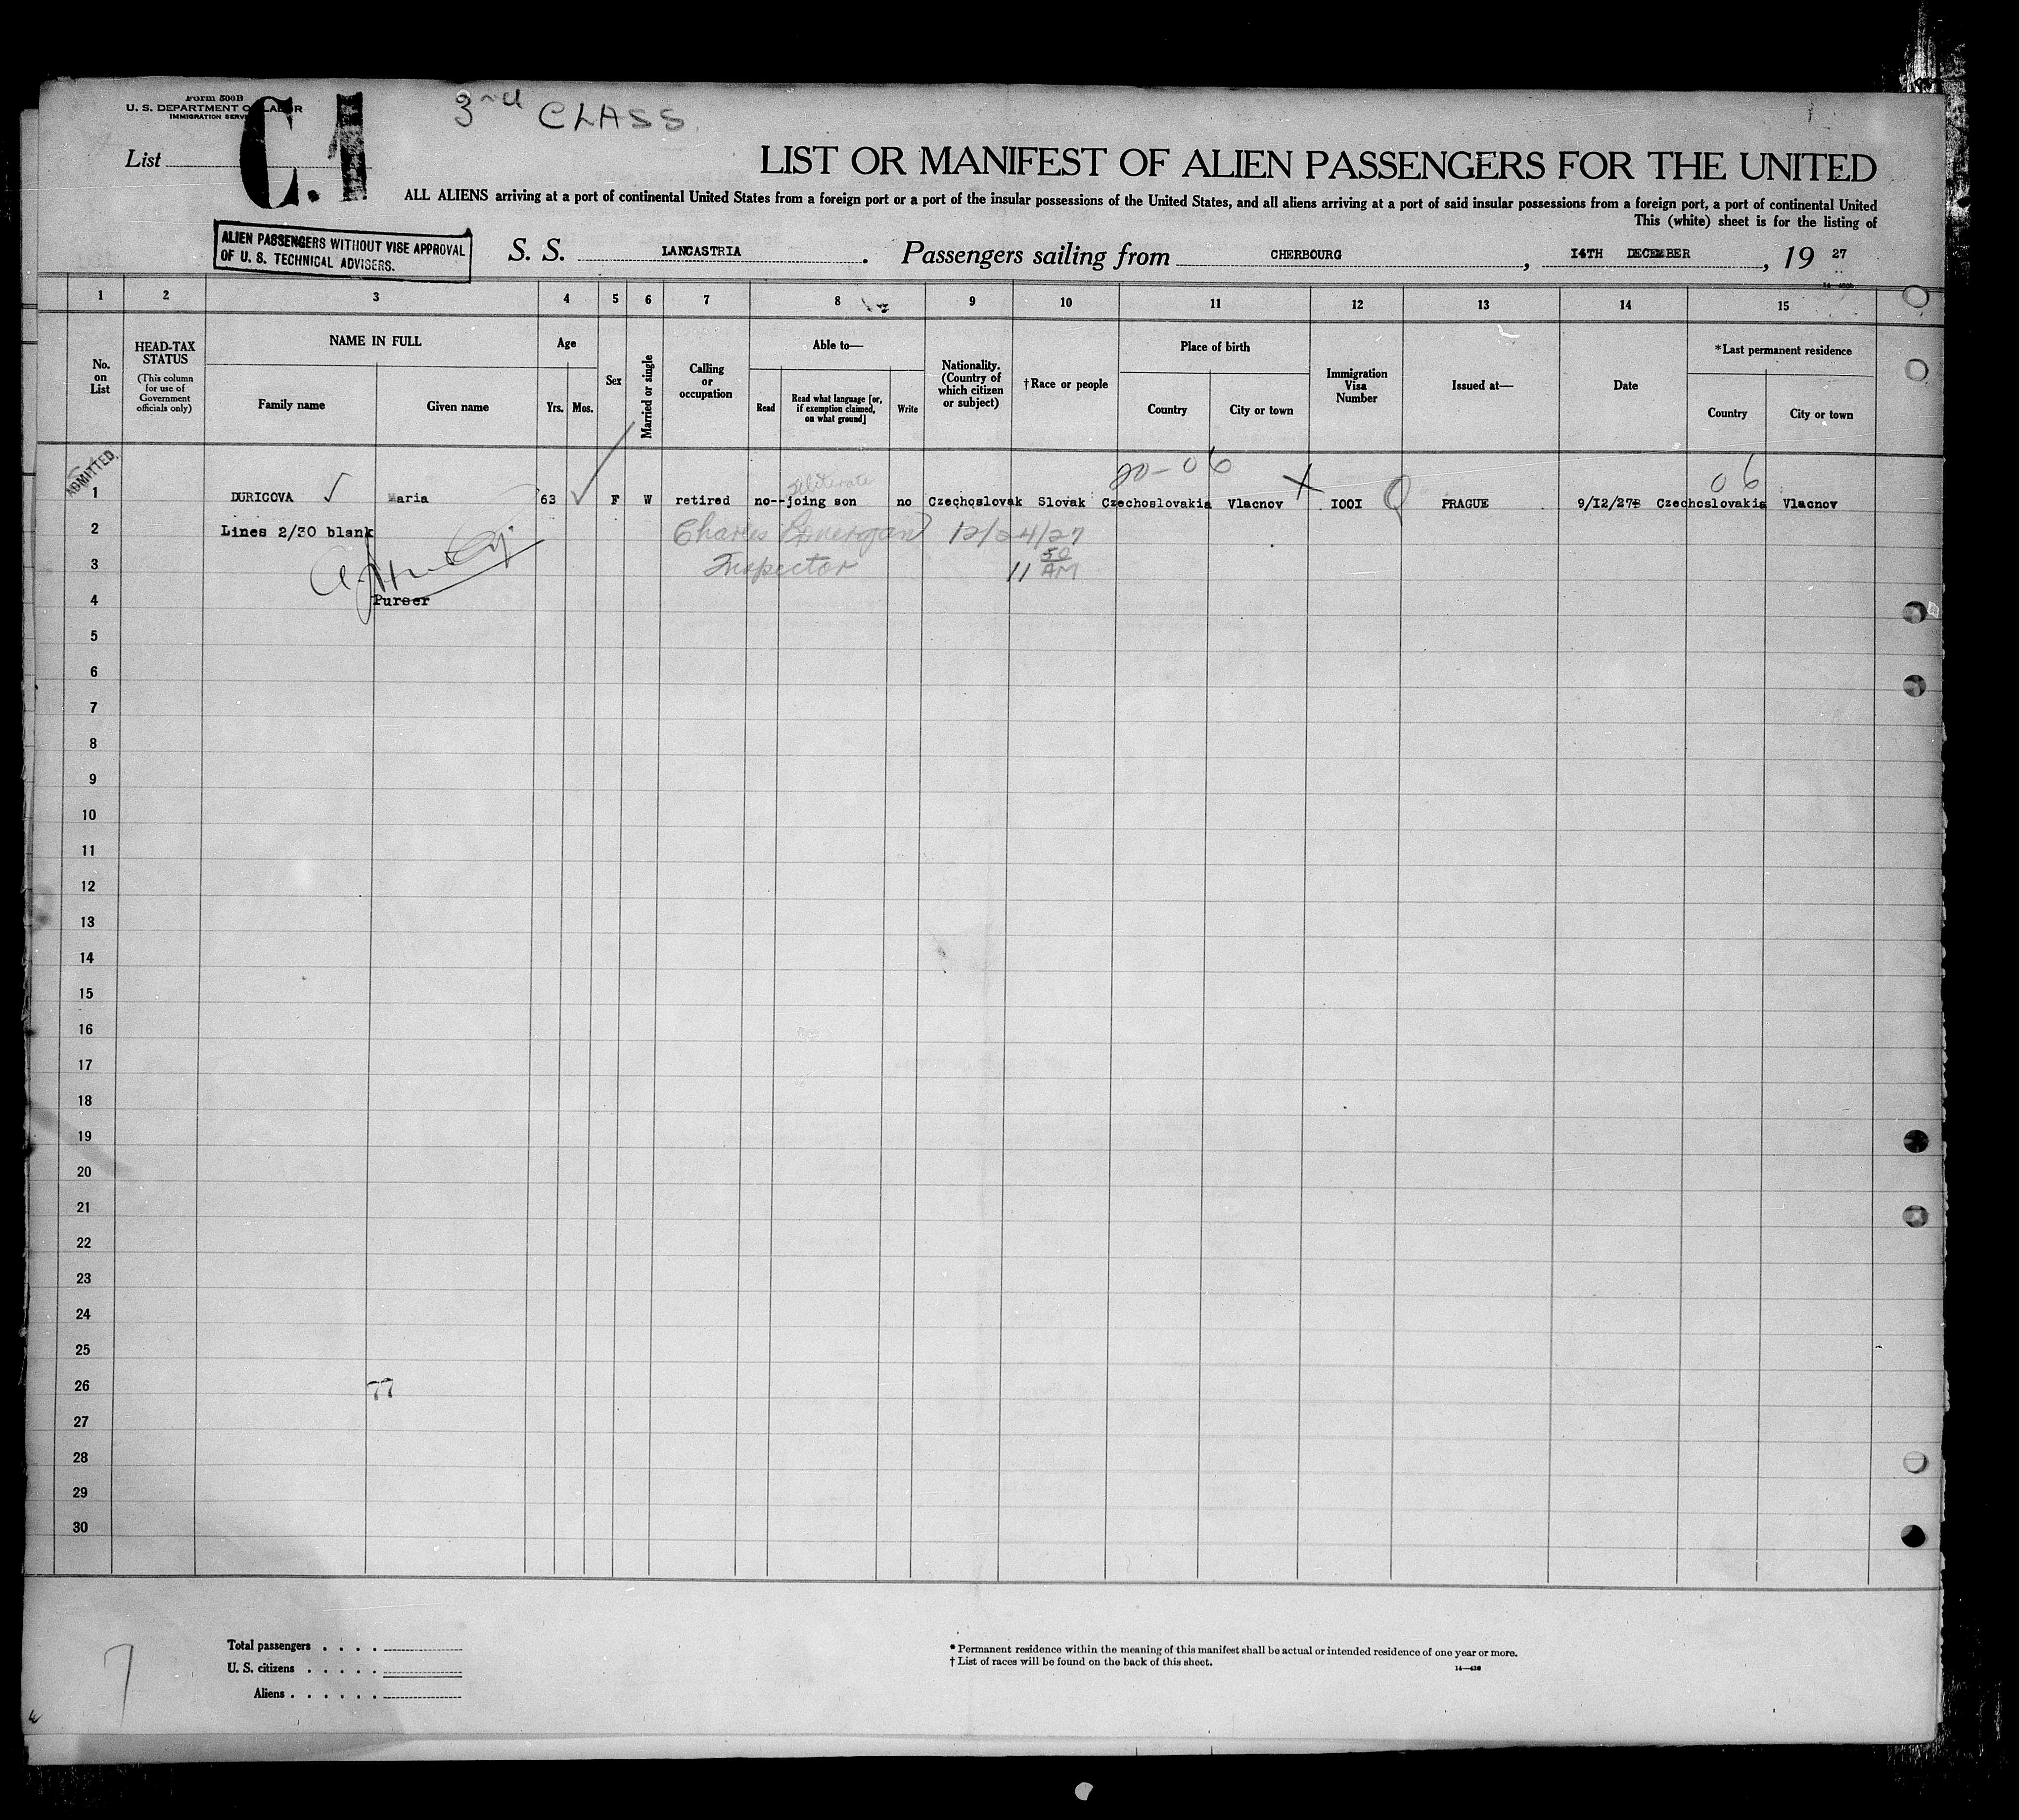 Form 500B
U. S. DEPARTMENT OF LABOR
IMMIGRATION SERV
C.1
3rd CLASS
List
LIST OR MANIFEST OF ALIEN PASSENGERS FOR THE UNITED
ALL ALIENS arriving at a port of continental United States from a foreign port or a port of the insular possessions of the United States, and all aliens arriving at a port of said insular possessions from a foreign port, a port of continental United
This (white) sheet is for the listing of
ALIEN PASSENGERS WITHOUT VISE APPROVAL
OF U. S. TECHNICAL ADVISERS.
S. S. LANCASTRIA. Passengers sailing from CHERBOURG, 14TH DECEMBER, 19 27
1 2 3 4 5 6 7 8 9 10 11 12 13 14 15
No. on List
HEAD-TAX STATUS
(This column for use of Government officials only)
NAME IN FULL
Family name Given name
Age
Yrs. Mos.
Sex
Married or single
Calling or occupation
Able to—
Read
Read what language [or, if exemption claimed, on what ground]
Write
Nationality. (Country of which citizen or subject)
†Race or people
Place of birth
Country City or town
Immigration Visa Number
Issued at—
Date
*Last permanent residence
Country City or town
ADMITTED
20-06 06
illiterate
1 DURICOVA Maria 63 F W retired no--joing son no Czechoslovak Slovak Czechoslovakia Vlacnov X I00I PRAGUE 9/I2/27 Czechoslovakia Vlacnov
2 Lines 2/30 blank Charles 12/24/27
3 Inspector 11 50 AM
4 Purser
5
6
7
8
9
10
11
12
13
14
15
16
17
18
19
20
21
22
23
24
25
26 77
27
28
29
30
Total passengers
U. S. citizens
Aliens
* Permanent residence within the meaning of this manifest shall be actual or intended residence of one year or more.
† List of races will be found on the back of this sheet.
14—430